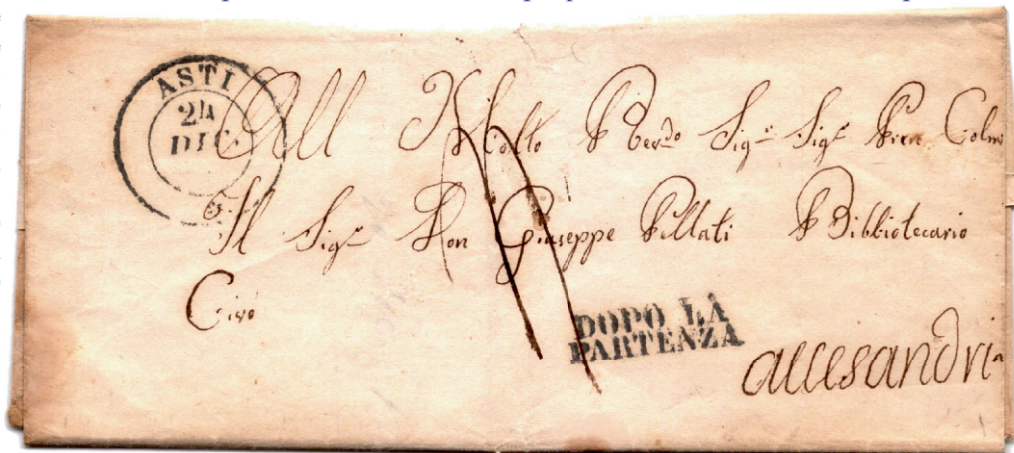 ASTI
24
DIC.
All Molto Rev.do Sig.r Sig.r Pron Colmo
Il Sig.r Don Giuseppe Pellati Bibliotecario
Civo
DOPO LA
PARTENZA
allesandria